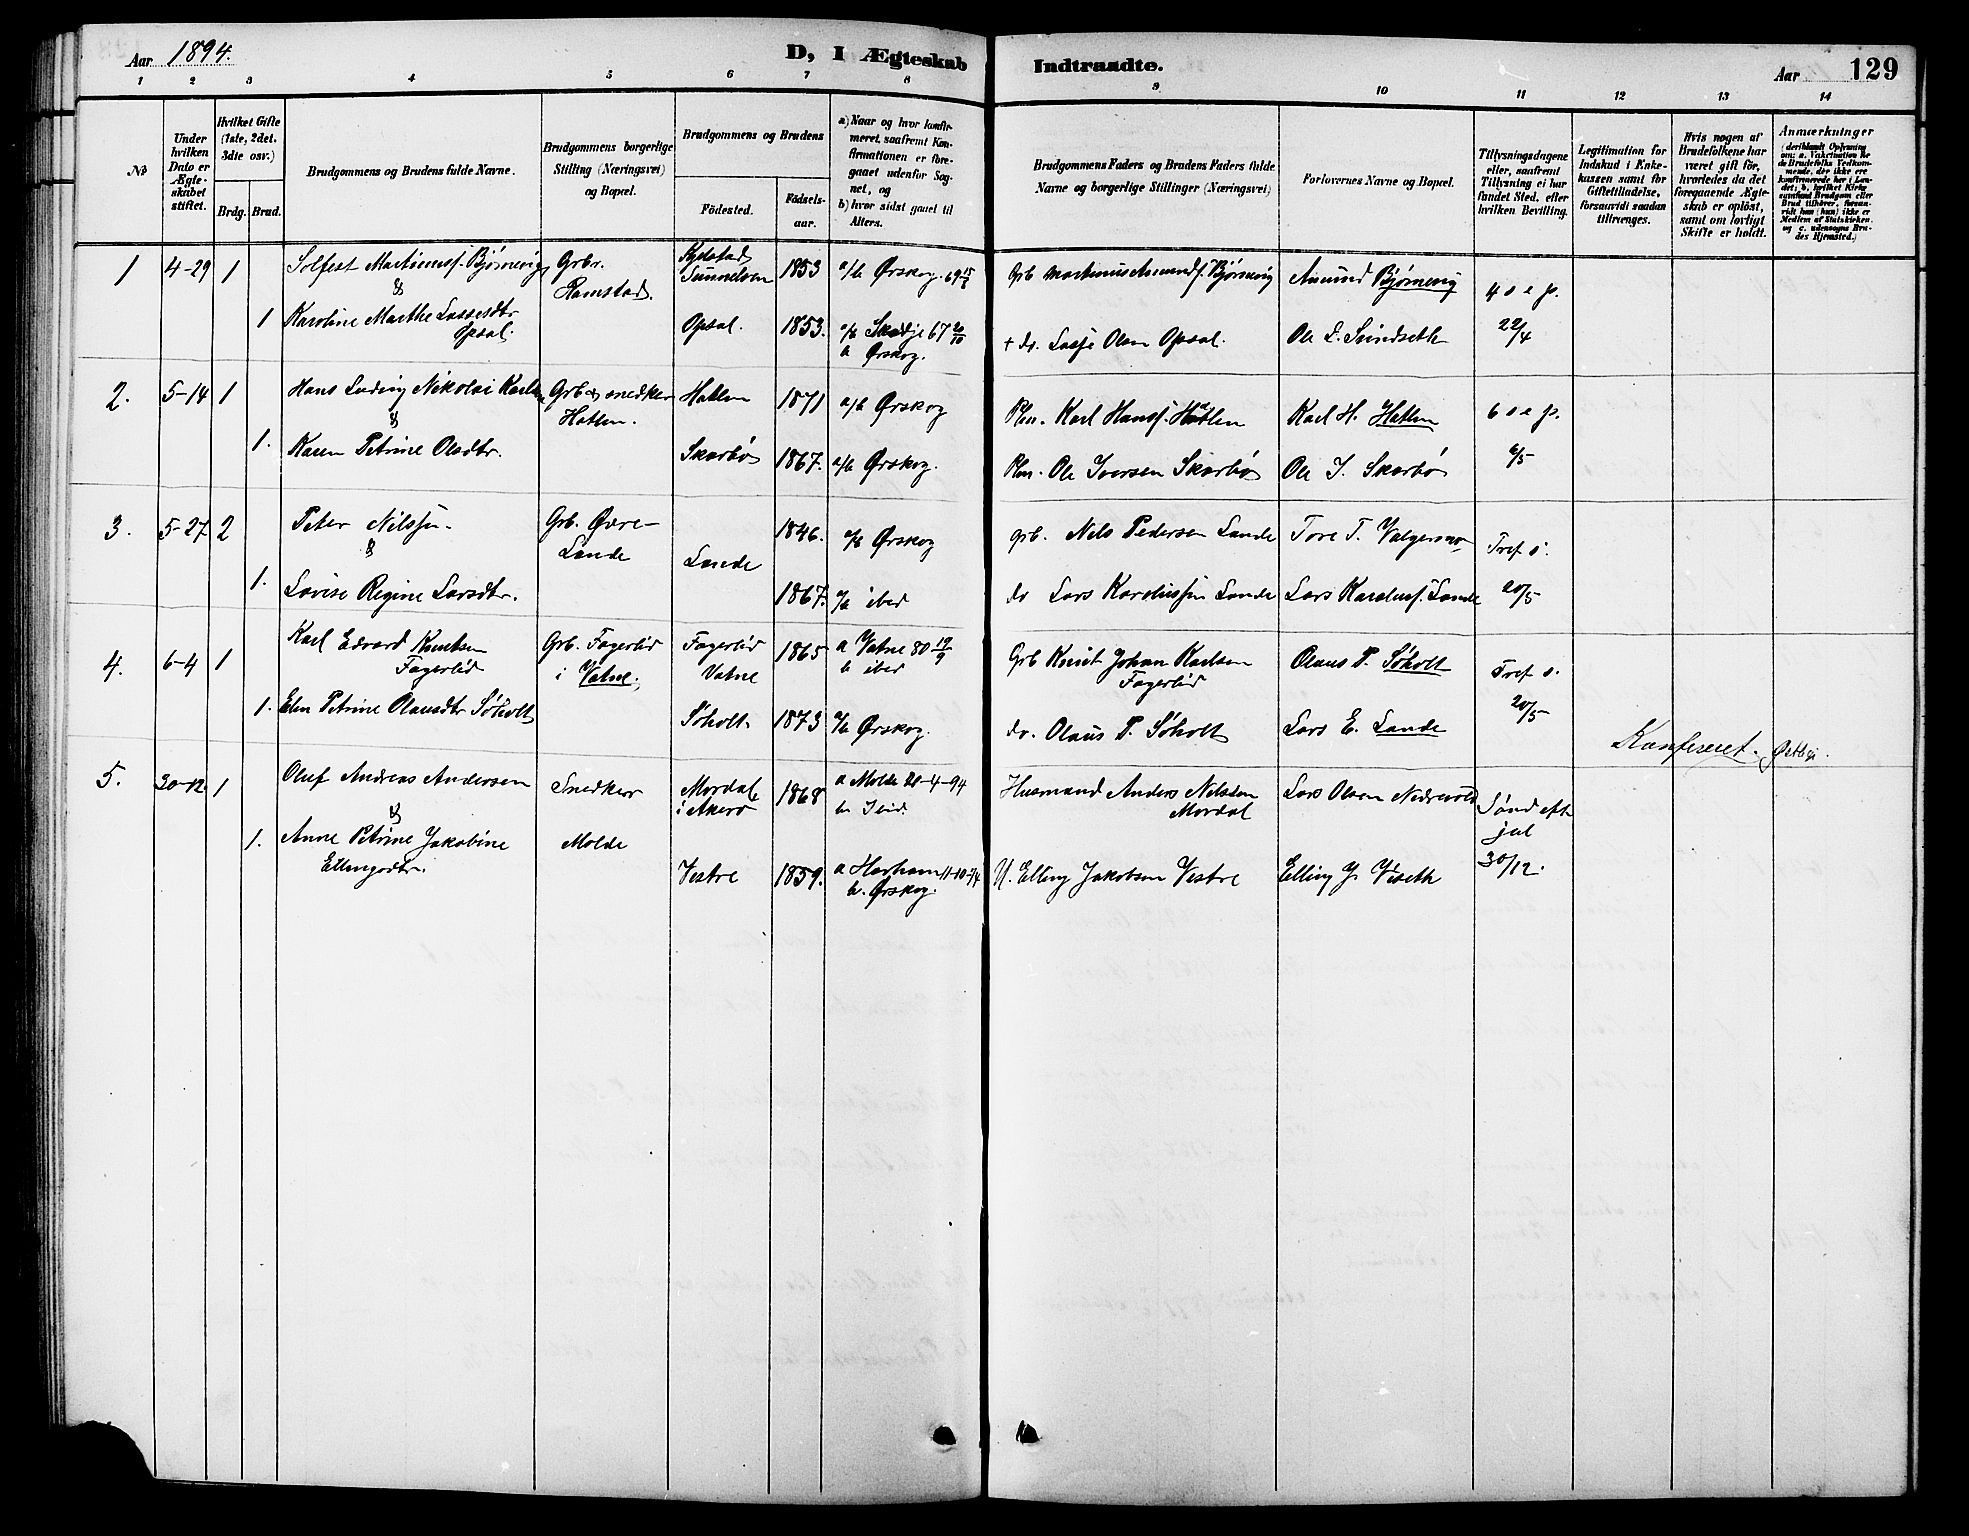 Aar 1894.
D, I Ægteskab Indtraadte.
Aar
129
1 2 3 4 5 6 7 8 9 10 11 12 13 14
№
Under hvilken Dato er Ægteskabet stiftet.
Hvilket Gifte (1ste, 2det, 3die osv.)
Brdg. Brud.
Brudgommens og Brudens fulde Navne.
Brudgommens borgerlige Stilling (Næringsvei) og Bopæl.
Brudgommens og Brudens
Födested. Födselsaar.
a) Naar og hvor konfirmeret, saafremt Konfirmationen er foregaaet udenfor Sognet, og
b) hvor sidst gaaet til Alters.
Brudgommens Faders og Brudens Faders fulde Navne og borgerlige Stillinger (Næringsvei)
Forlovernes Navne og Bopæl.
Tillysningsdagene eller, saafremt Tillysning ei har fundet Sted, efter hvilken Bevilling.
Legitimation for Indskud i Enkekassen samt for Giftetilladelse, forsaavidt saadan tiltrænges.
Hvis nogen af Brudefolkene har været gift för, hvorledes da det foregaaende Ægteskab er oplöst, samt om lovligt Skifte er holdt.
Anmærkninger
1 4-29 1 Solfest Martinussf. Bjørnevig Grbr. Ramstad. Sunnelven 1853 a/b Ørskog 69 Grb Martinus Amundsf. Bjørnevig Amund Bjørnevig 4 s e p.
&
1 Karoline Marthe Lassesdtr Opsal. Opsal. 1853. a/b Skodje 67 20/10 b Ørskog. + do. Lasse Olsen Opsal. Ole L. Svindseth 22/4
2. 5-14 1 Hans Ludvig Nikolai Karlsen Grb & snedker Hatlen. Hatlen 1871 a/b Ørskog Karl Hanssf. Hatlen Karl H. Hatlen 6 s e p.
&
1. Karen Petrine Olsdtr. Skarbø 1867. a/b Ørskog. Ole Iversen Skarbø Ole I. Skarbø 6/5
3. 5-27 2 Peter Nilssen. Grb. Øvre-Lande Lande 1846. a/b Ørskog grb. Nils Pedersen Lande Tore T. Valgermo Tref s.
&
1. Lovise Regine Larsdtr. 1867. a/b ibid do Lars Karolussen Lande Lars Karolusf. Lande 20/5
4. 6-4 1 Karl Edvard Knutsen Fagerlid Grb. Fagerlid i Vatne. Fagerlid Vatne 1865 a Vatne 80 19/9 b ibid Grb Knut Johan Karlsen Fagerlid Olaus P. Søholt Tref s.
1. Elen Petrine Olausdtr Søholt Søholt. 1873 a/b Ørskog. do. Olaus P. Søholt Lars E. Lande 20/5
Konfereret.
5. 30-12 1 Oluf Andreas Andersen Snedker Mordal i Akerø 1868 a Molde -4-94 b Ibid. Husmand Anders Nilssen Mordal Lars Olsen Nedrevold Sønd eft jul
&
1. Anne Petrine Jakobine Ellingsdtr. Molde Vestre 1859. a Harham 11-10-74 b. Ørskog. Elling Jakobsen Vestre Elling J. Viseth 30/12.